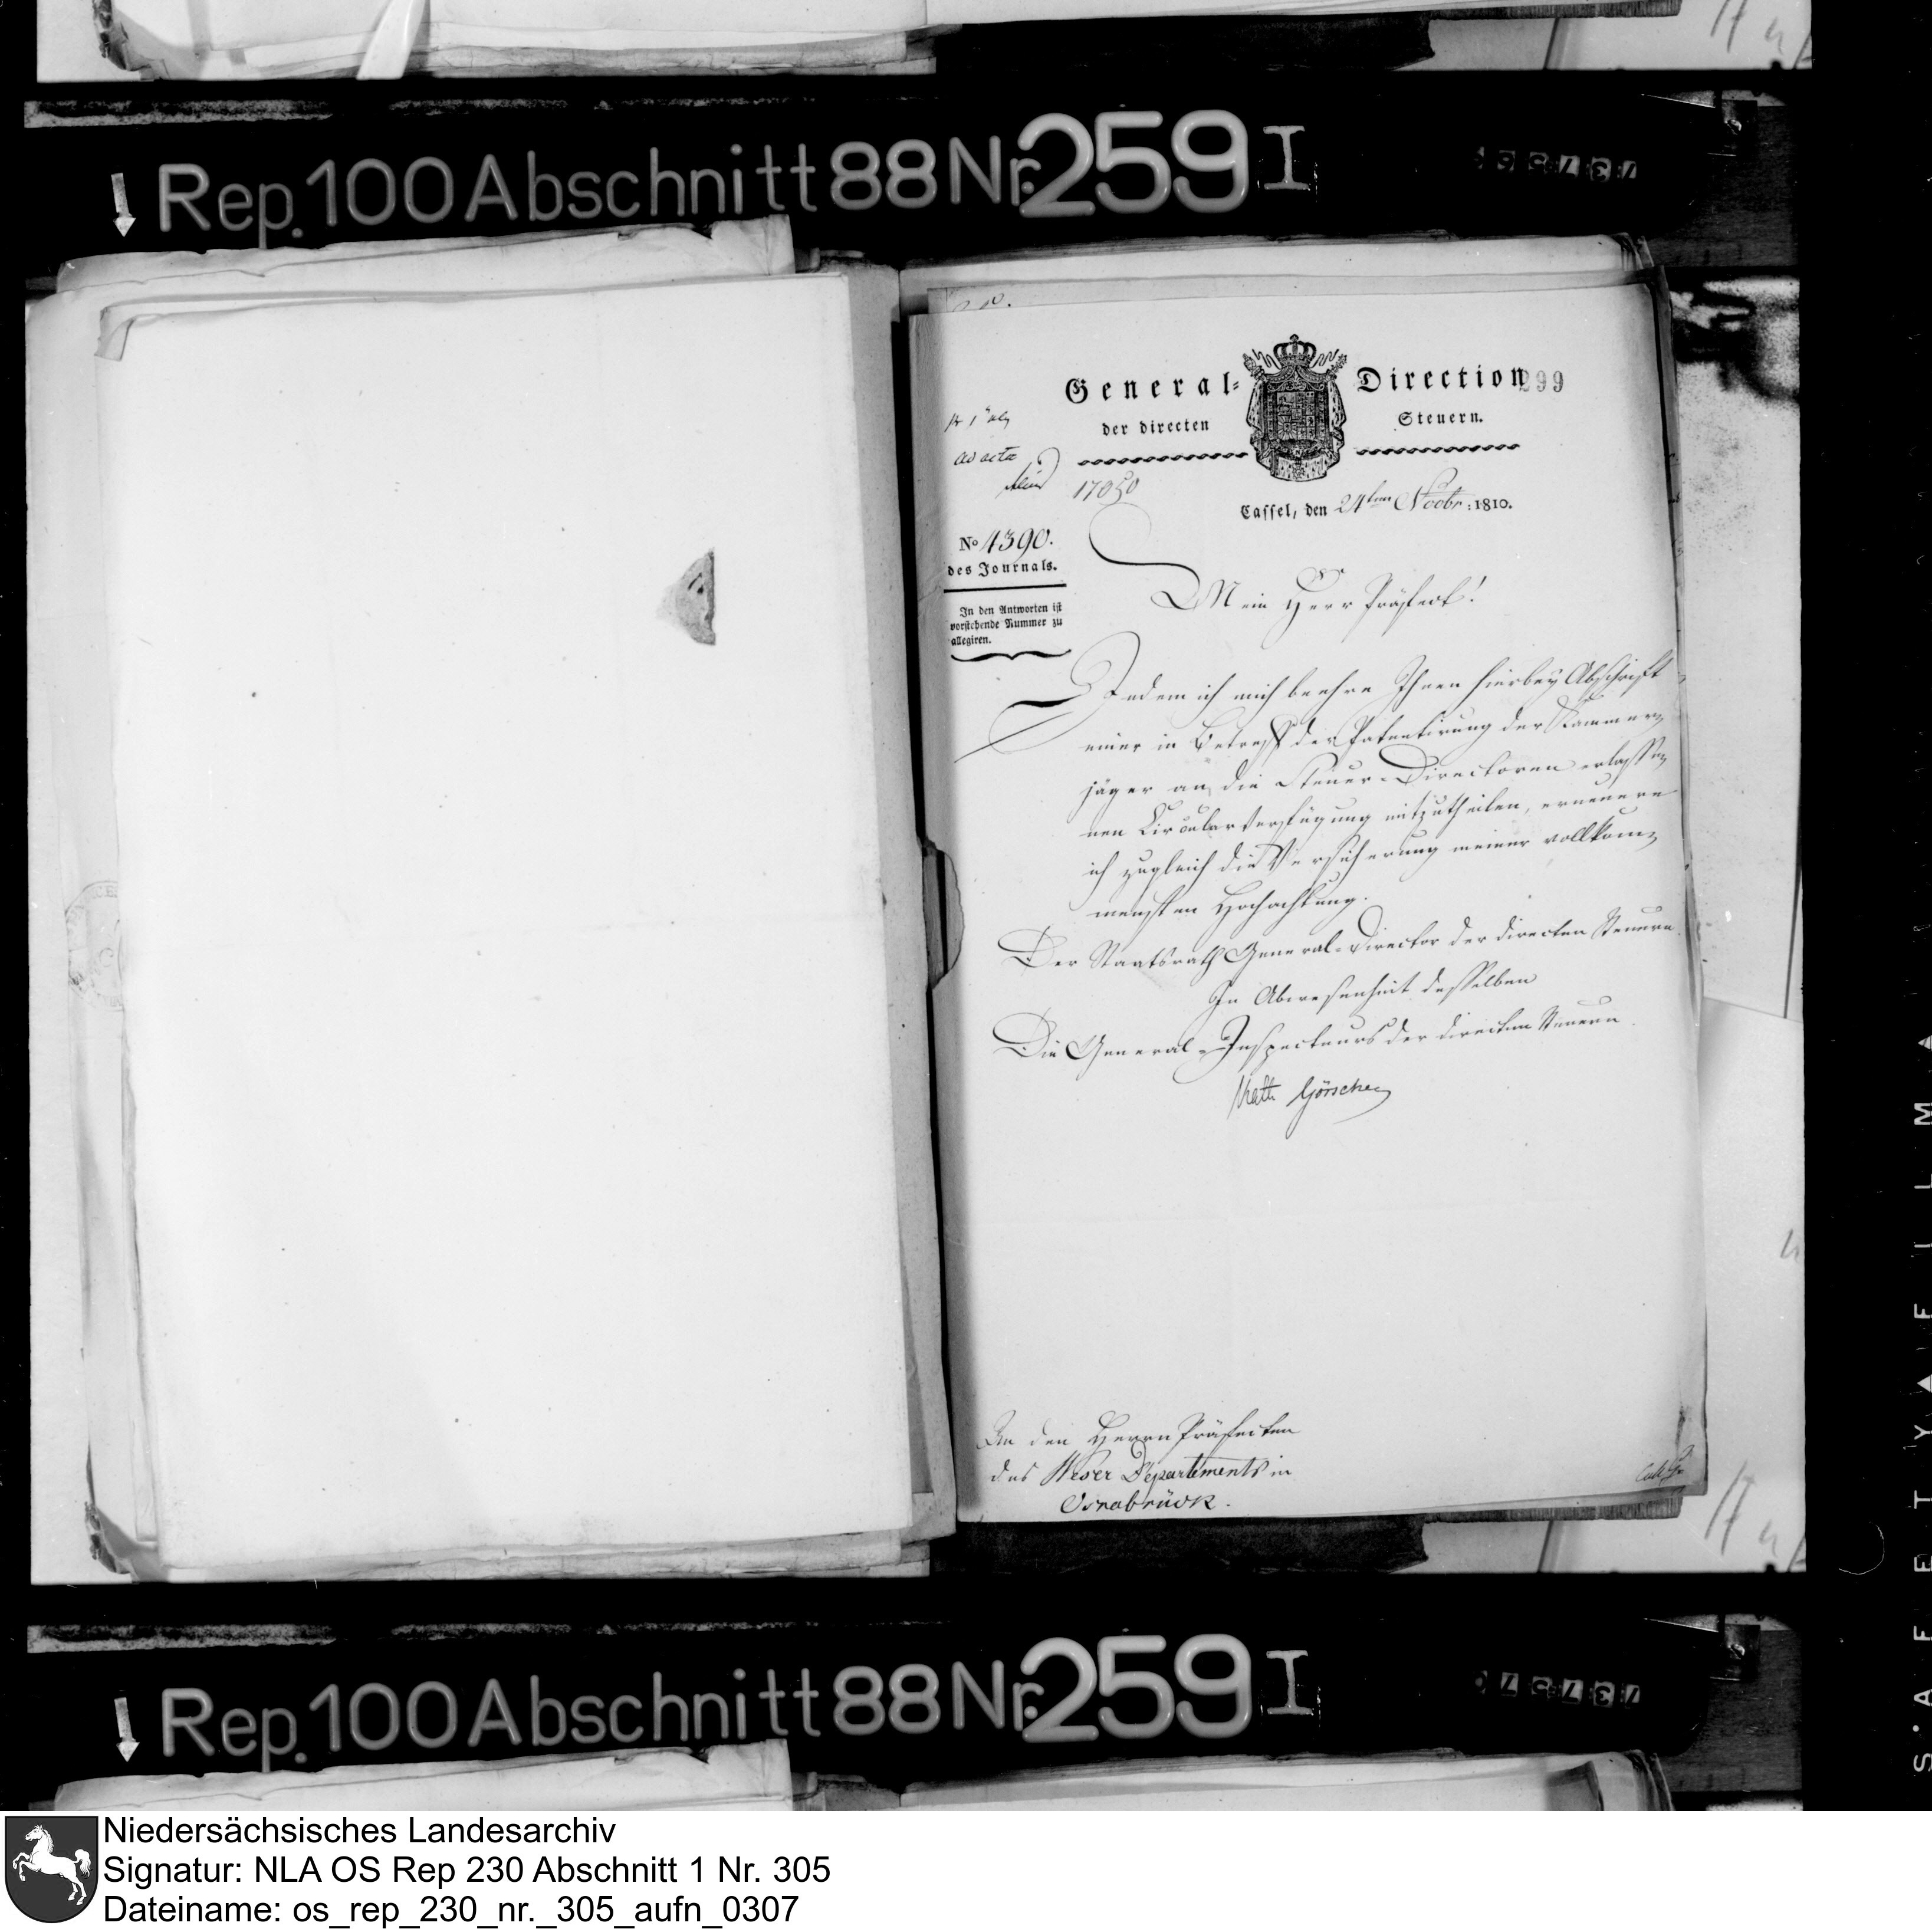 Rep. 100 Abschnitt 88 Nr. 259 I
299
General= Direction
der directen Steuern.
ad acta
17050
Cassel, den 24ten Novbr: 1810.
No 4390.
des Journals.
In den Antworten ist
vorstehende Nummer zu
allegiren.
Mein Herr Präfect!
Indem ich mich beehre Ihnen hierbey Abschrift
einer in Betreff der Patentirung der Kammer=
jäger an die Steuer-Directoren erlasse=
nen Circularverfügung mitzutheilen, erneuere
ich zugleich die Versicherung meiner vollkom=
mensten Hochachtung.
Der Staatsrath General-Director der directen Steuern.
In Abwesenheit desselben
Die General-Inspecteurs der directen Steuern.
Görschen
An den Herrn Präfecten
des Weser Departements in
Osnabrück.
Rep. 100 Abschnitt 88 Nr. 259 I
SAFETY FILM A
Niedersächsisches Landesarchiv
Signatur: NLA OS Rep 230 Abschnitt 1 Nr. 305
Dateiname: os_rep_230_nr._305_aufn_0307